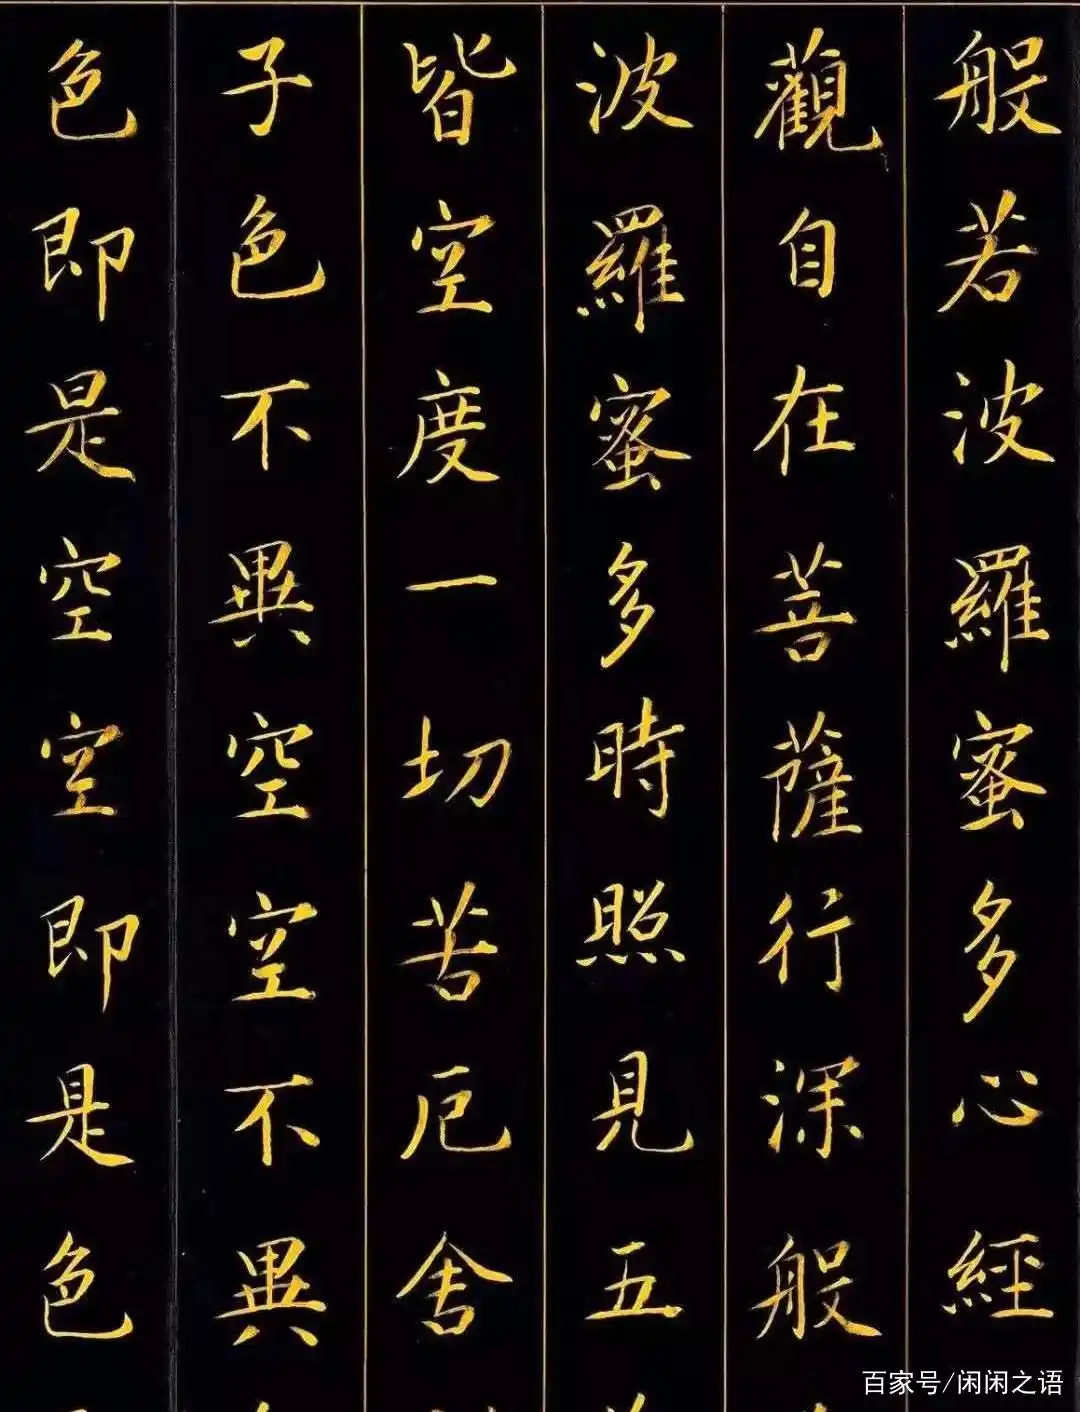 般若波羅蜜多心經
觀自在菩薩行深般
波羅蜜多時照見五
皆空度一切苦厄舍
子色不異空空不異
色即是空空即是色
百家号/闲闲之语